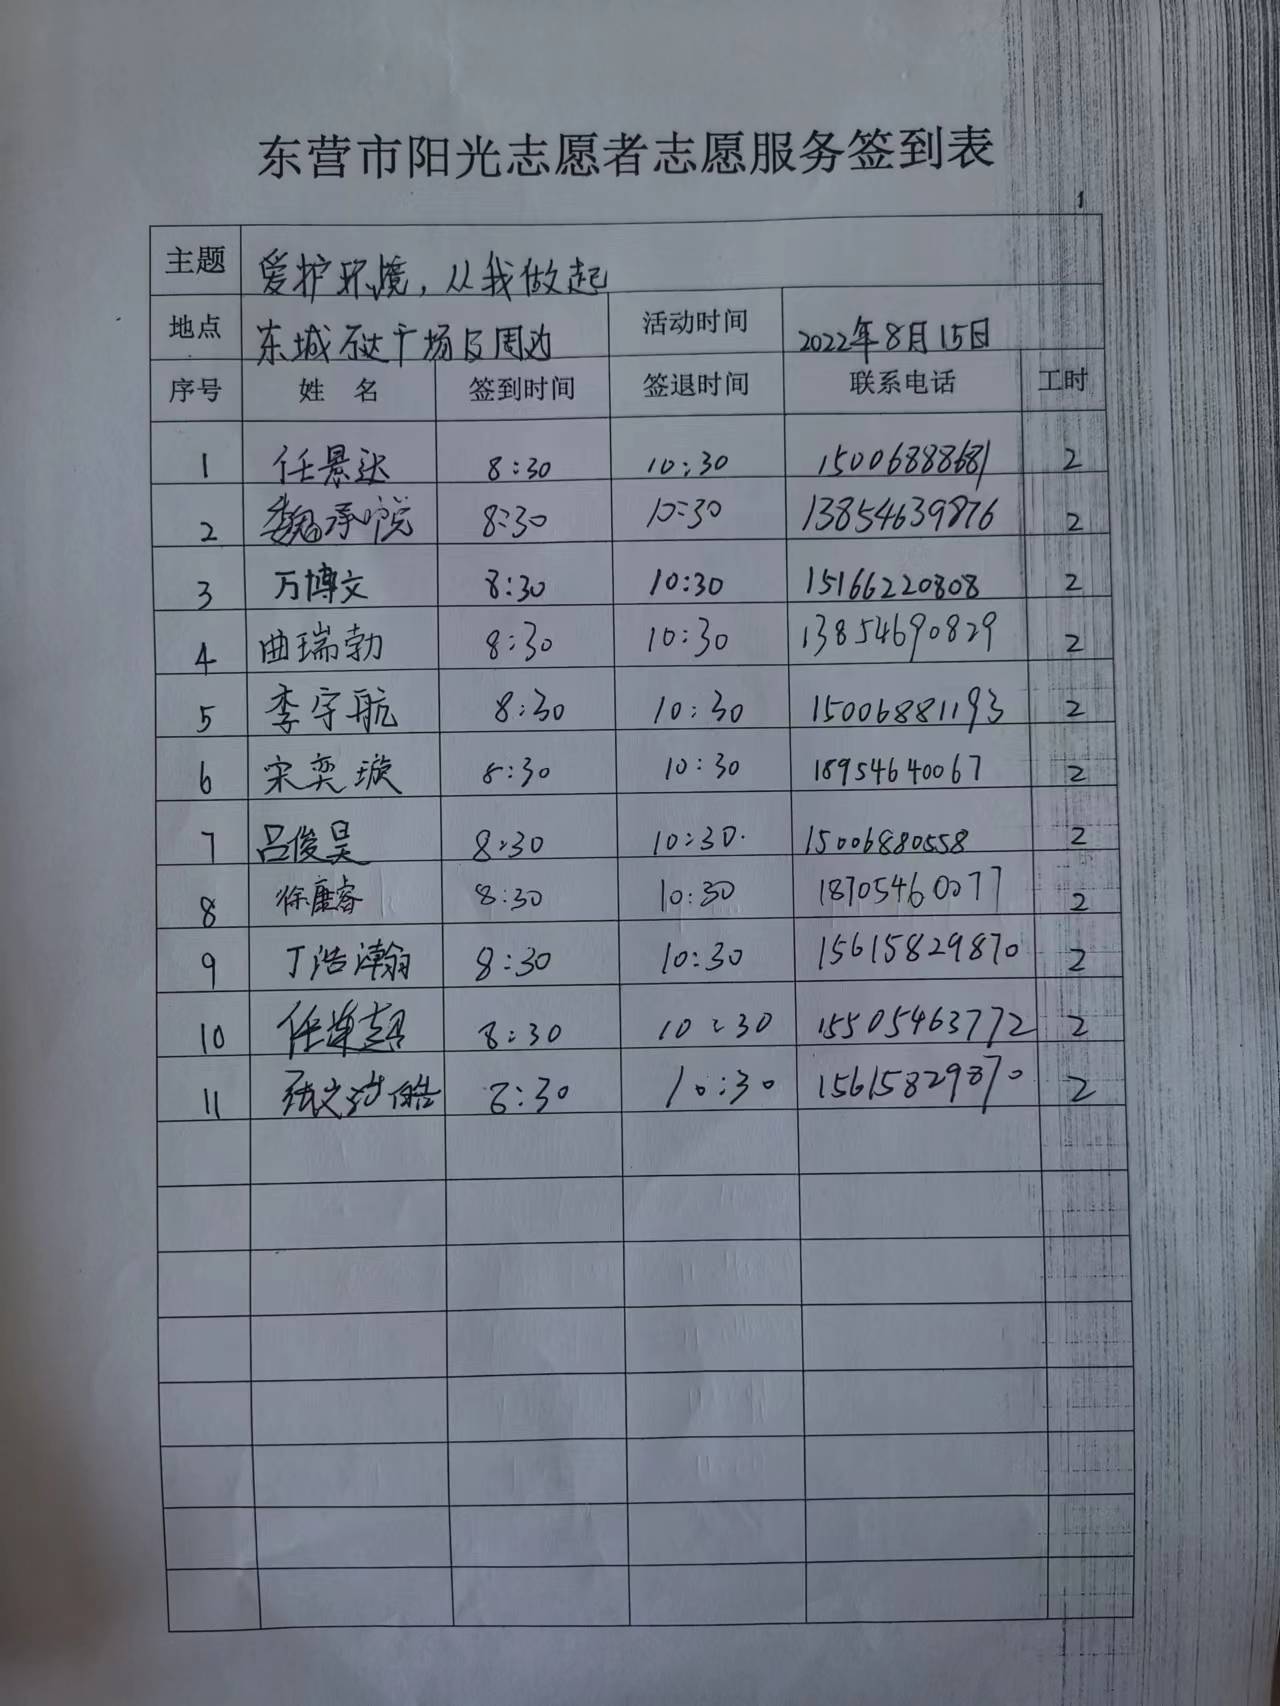 东营市阳光志愿者志愿服务签到表
主题 爱护环境，从我做起
地点 东城万达广场及周边 活动时间 2022年8月15日
序号 姓名 签到时间 签退时间 联系电话 工时
1 任景达 8:30 10:30 15006888681 2
2 魏承悦 8:30 10:30 13854639876 2
3 万博文 8:30 10:30 15166220808 2
4 曲瑞勃 8:30 10:30 13854690829 2
5 李宇航 8:30 10:30 15006881193 2
6 宋奕璇 8:30 10:30 18954640067 2
7 吕俊昊 8:30 10:30 15006880558 2
8 徐康睿 8:30 10:30 18705460077 2
9 丁浩瀚 8:30 10:30 15615829870 2
10 任 8:30 10:30 15505463772 2
11 张文 皓 8:30 10:30 15615829870 2